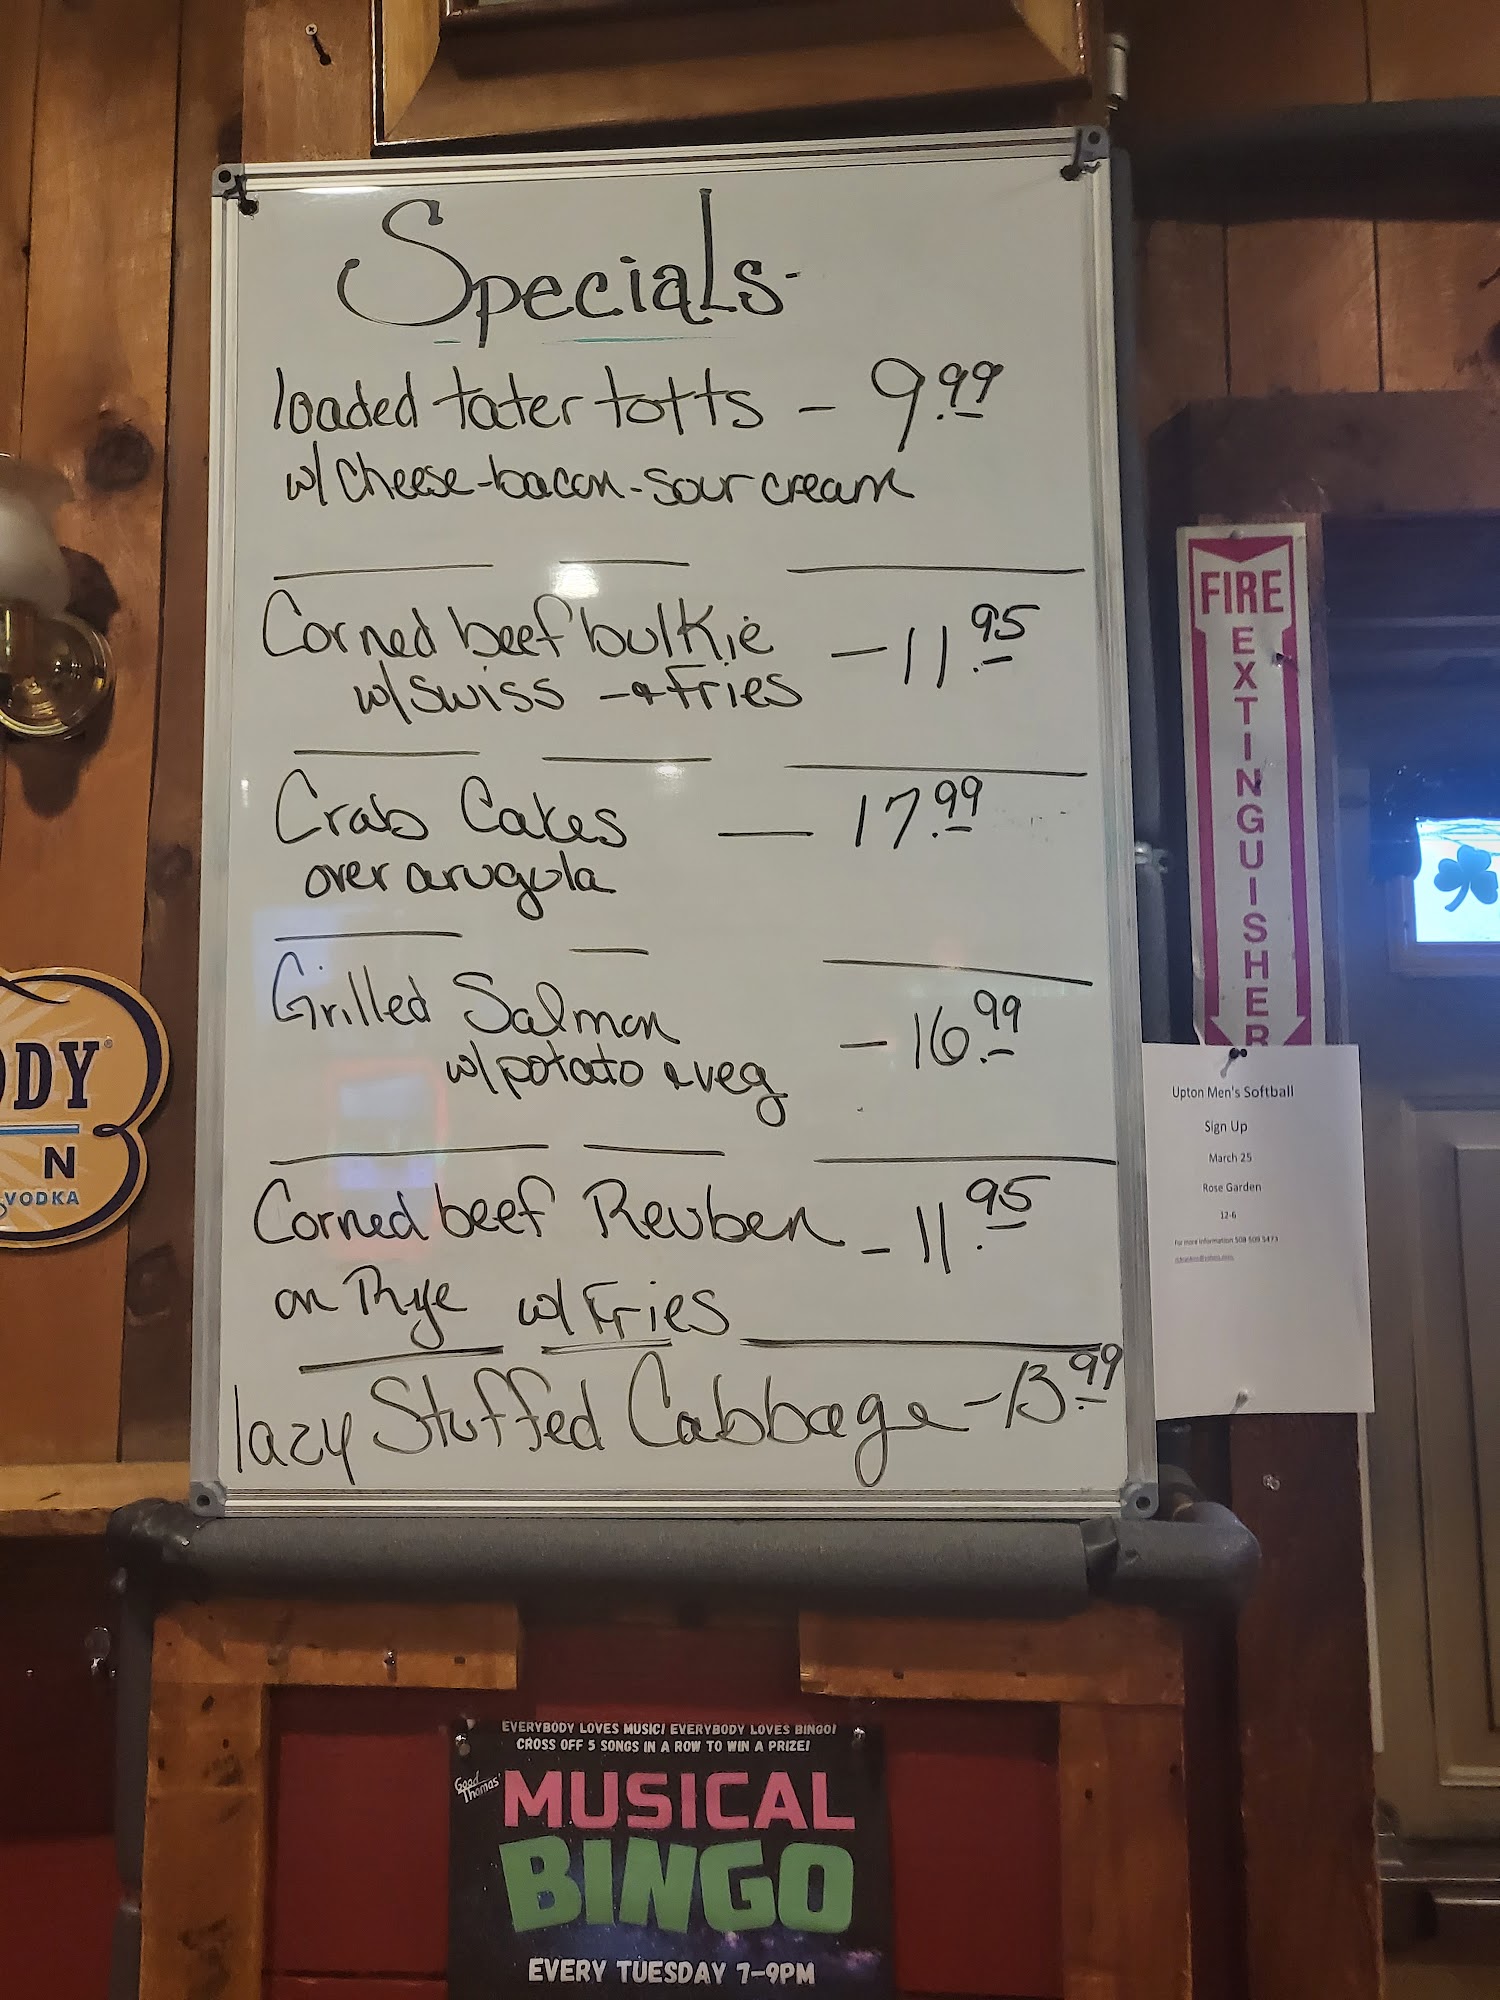 Specials
loaded tater totts - 9.99
w/ Cheese-bacon-sour cream
Corned beef bulkie - 11.95
w/ Swiss - & Fries
Crab Cakes - 17.99
over arugula
Grilled Salmon - 16.99
w/ potato & veg
Corned beef Reuben - 11.95
on Rye w/ Fries
lazy Stuffed Cabbage - 13.99
FIRE
EXTINGUISHER
ODY
N
VODKA
Upton Men's Softball
Sign Up
March 25
Rose Garden
12-6
For more information 508 509 5473
EVERYBODY LOVES MUSIC! EVERYBODY LOVES BINGO!
CROSS OFF 5 SONGS IN A ROW TO WIN A PRIZE!
Good
Thomas'
MUSICAL
BINGO
EVERY TUESDAY 7-9PM